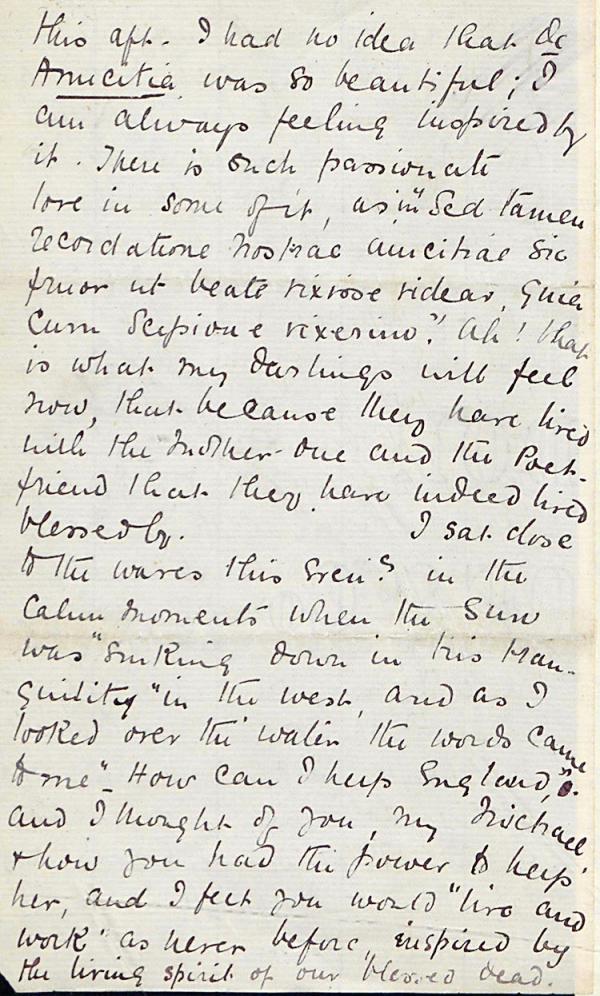 this aft. I had no idea that De
Amicitia was so beautiful; I
am always feeling inspired by
it. There is such passionate
love in some of it, as in "Sed tamen
recordatione nostrae amicitiae sic
fruor ut beate vixisse videar, quia
cum Scipione vixerim." Ah! that
is what my darlings will feel
now, that because they have lived
with the Mother-one and the Poet-
friend that they have indeed lived
blessedly. I sat close
to the waves this Even:g in the
calm moments when the Sun
was "sinking down in his tran-
quility" in the west, and as I
looked over the water the words came
to me "- How can I help England,"
and I thought of you, my Michael
& how you had the power to help
her, and I felt you would "live and
work" as never before, inspired by
the living spirit of our blessed dead.